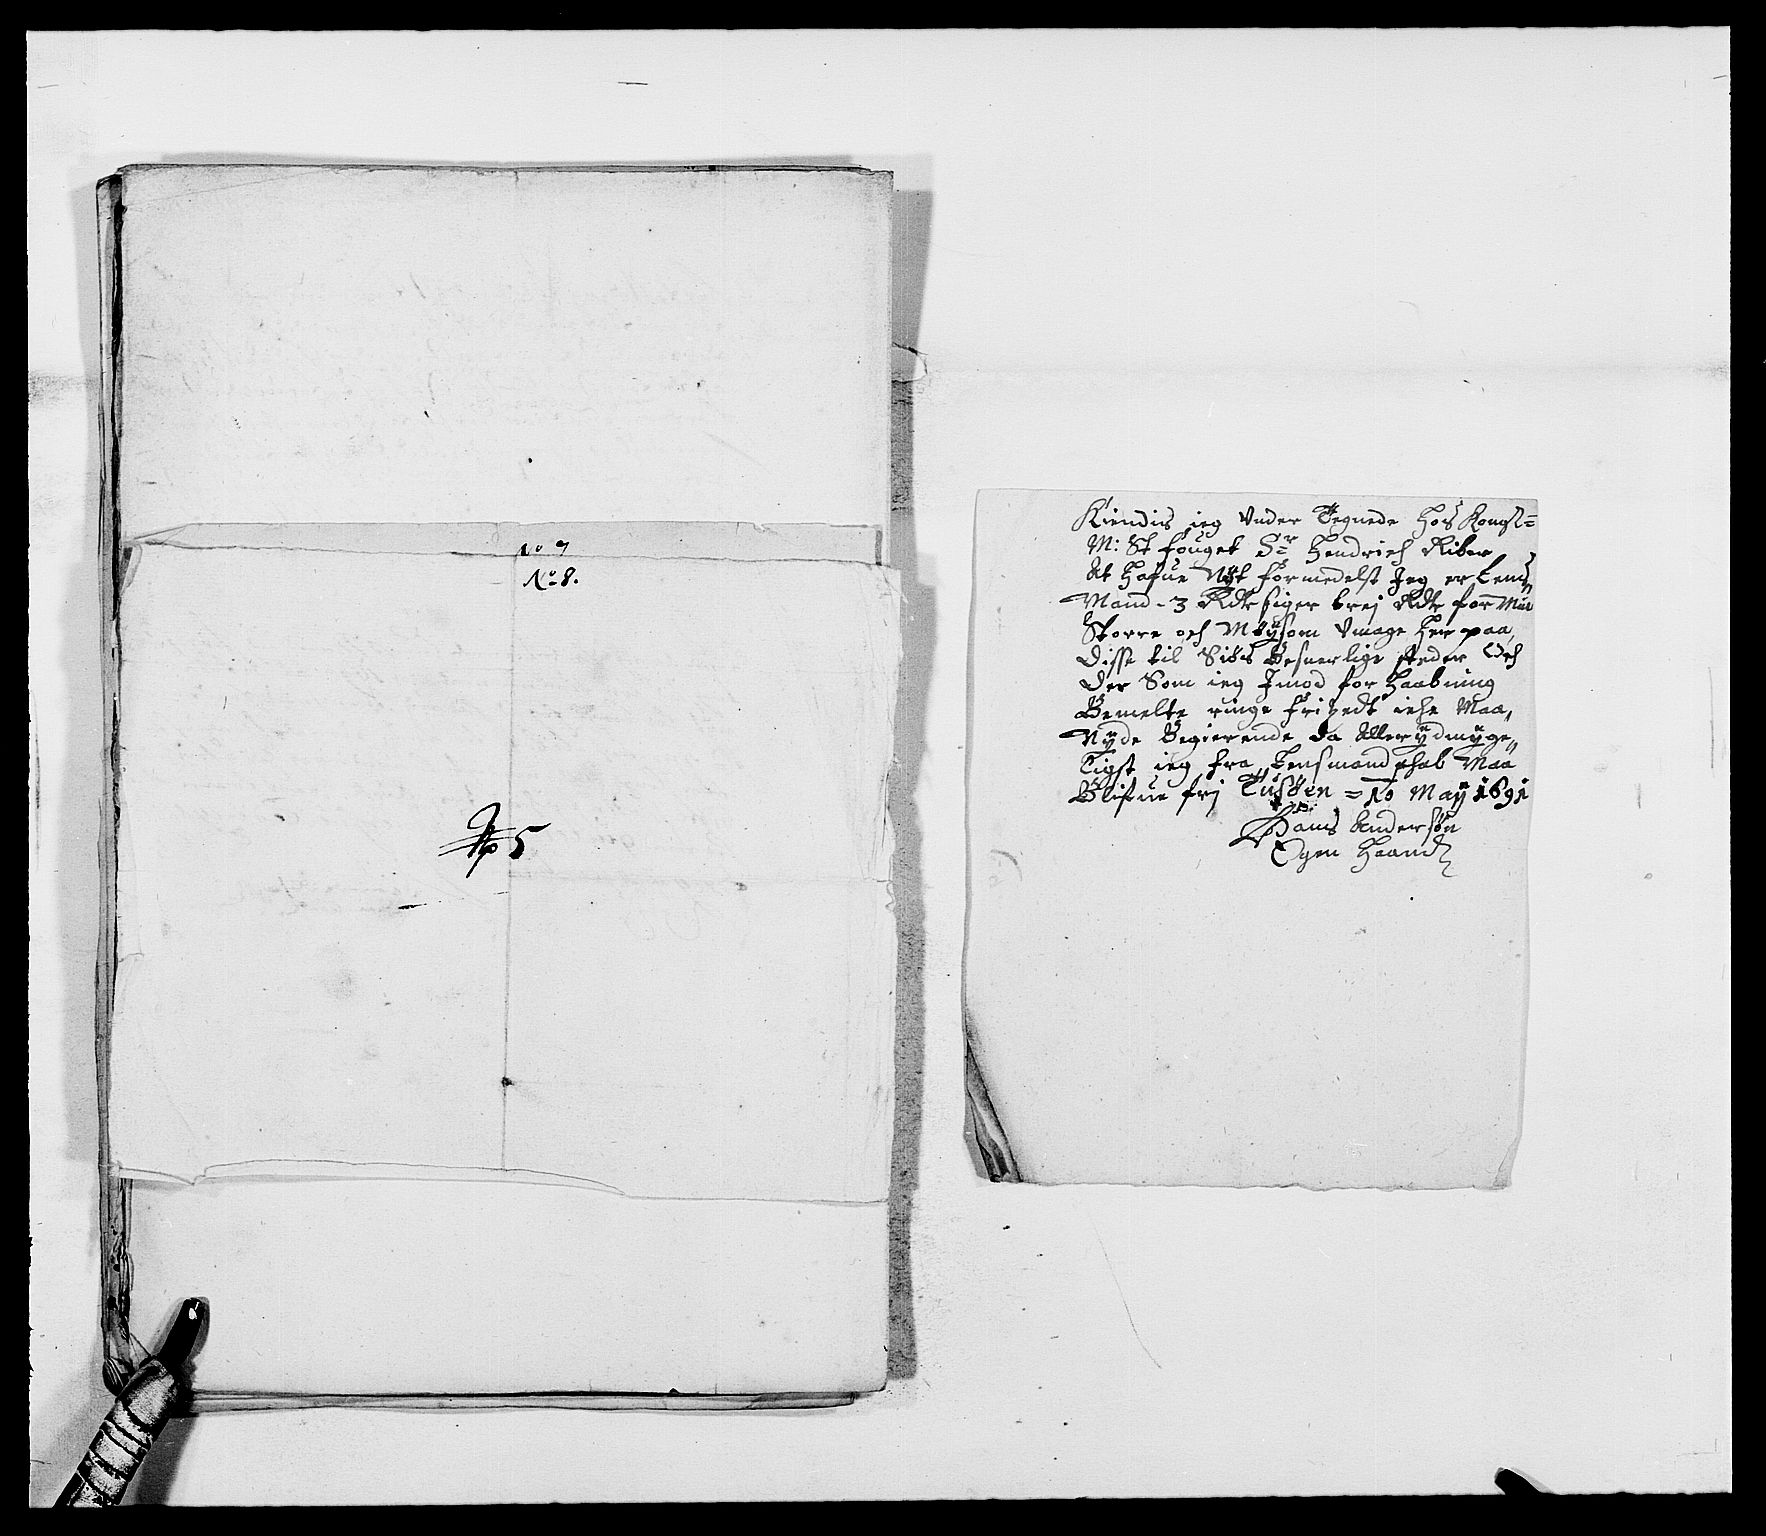 No 7
No 8.
No 5
Kiendis ieg Under Tegnede Hos Kongl=
M: St fouget Sr Hendrich Riber
At Hafue Nÿt formedelst Jeg er Lens
Mand - 3 Rdr siger trej Rdr for Min
Storre och Møÿsom Umage Her paa,
disse til Siøs Besuerlige steder Och
der Som ieg Imod forhaabning
Bemelte ringe frihedt iche Maa,
Nÿde Begierende da Allerÿdmÿge,,
ligst ieg fra Lensmandschab Maa
Blifue frj Tusøen = 10 Maÿ 1691
Hans Andersøn
Egen Haand